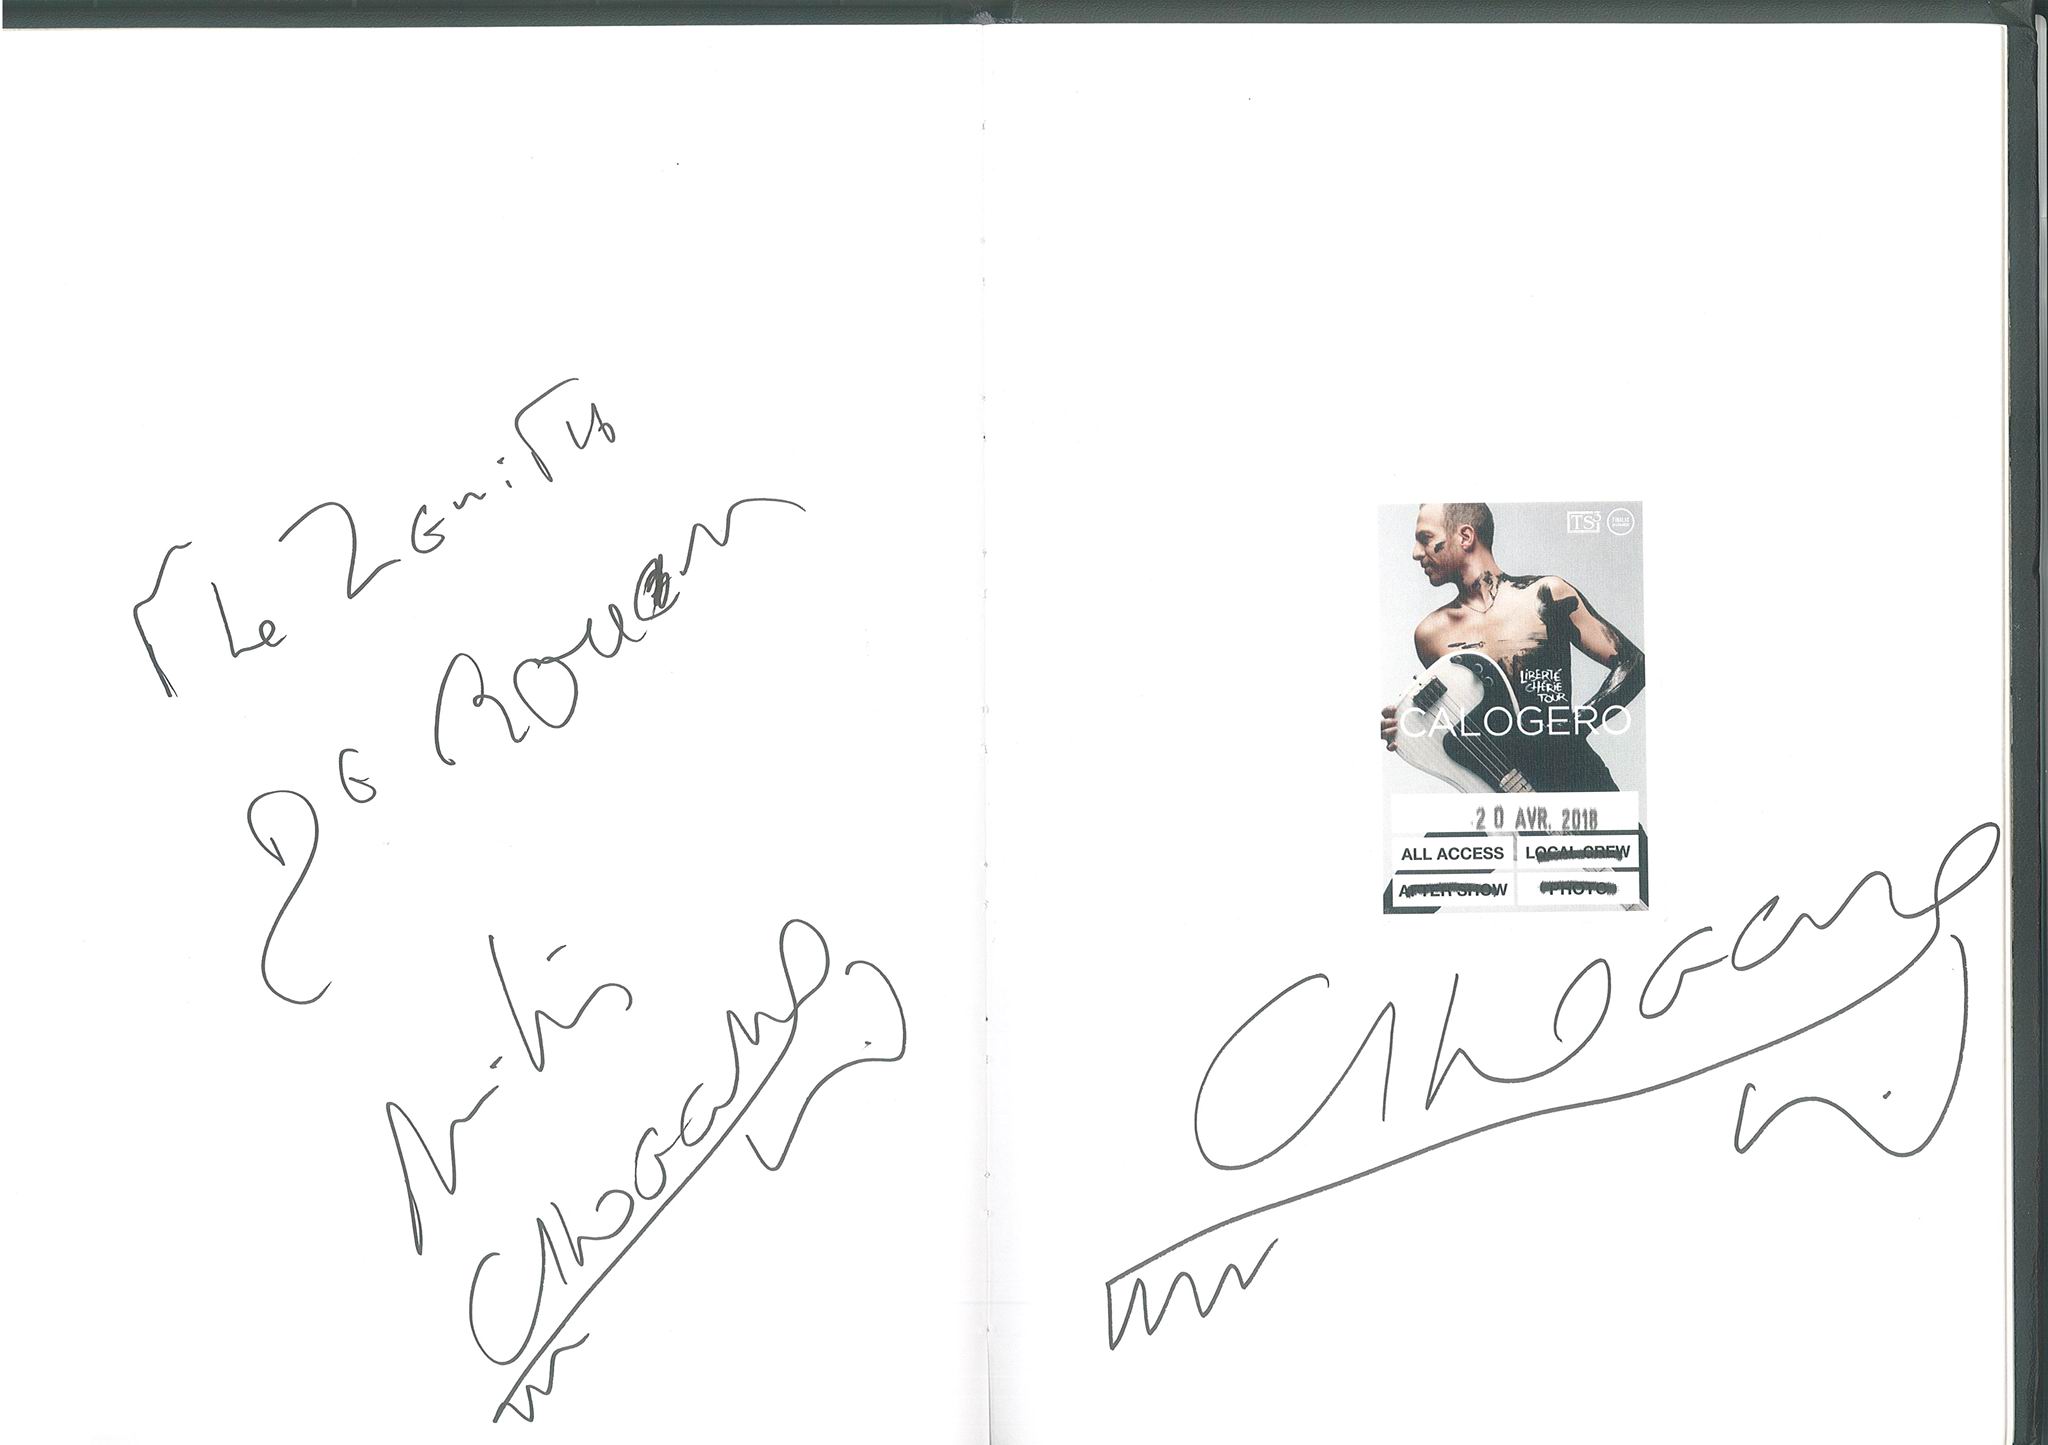 Le Zenith
De Rouen
Amitiés
Calogero
TS3
LIBERTÉ
CHÉRIE
TOUR
CALOGERO
20 AVR. 2018
ALL ACCESS LOCAL CREW
AFTER SHOW PHOTO
Calogero